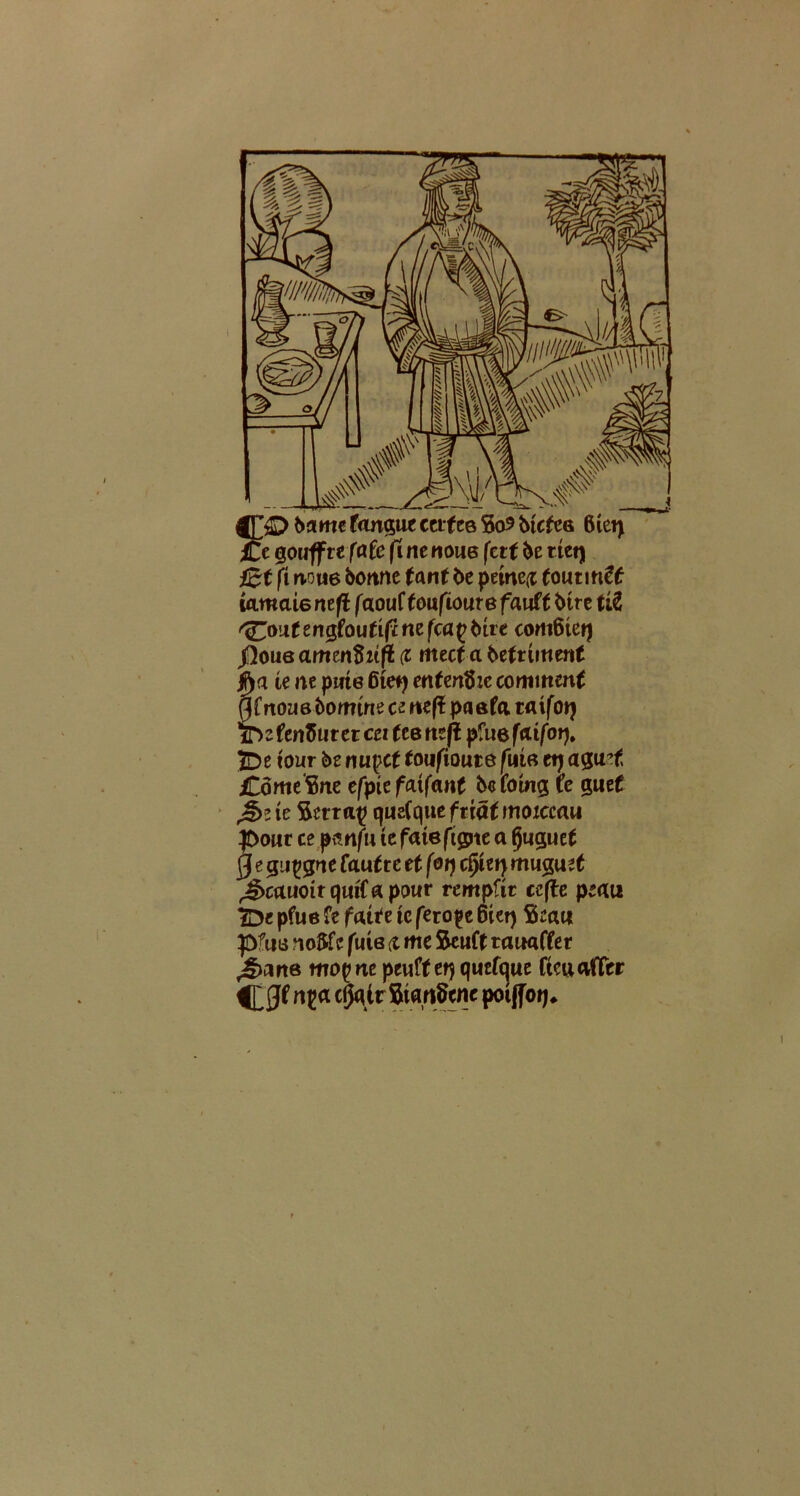 ¶O dame langue certes vo⁹ dictes bien
Ce gouffre sale si ne nous sert de rien
Et si nous donne tant de peine & tourmēt
iamais nest saoul tousiours fault dire tiē
Tout engloutist ne scay dire combien
Nous amendrist & mect a detriment
Ha ie ne puis bien entendre comment
Il nous domine ce nest pas la raison
Desendurer certes nest plus saison.
De iour de nuyct tousiours suis en aguet
Cōme vne espie faisant de loing le guet
Se ie verray quelque friāt morceau
Pour ce pansu ie fais signe a huguet
Je guygne lautre et son chien muguet
Scauoir quil a pour remplir ceste peau
De plus le faire ie feroye bien veau
Plus nobles suis & me veult rauasser
Sans moy ne peult en quelque lieu aller
¶Il nya chair viande ne poisson.